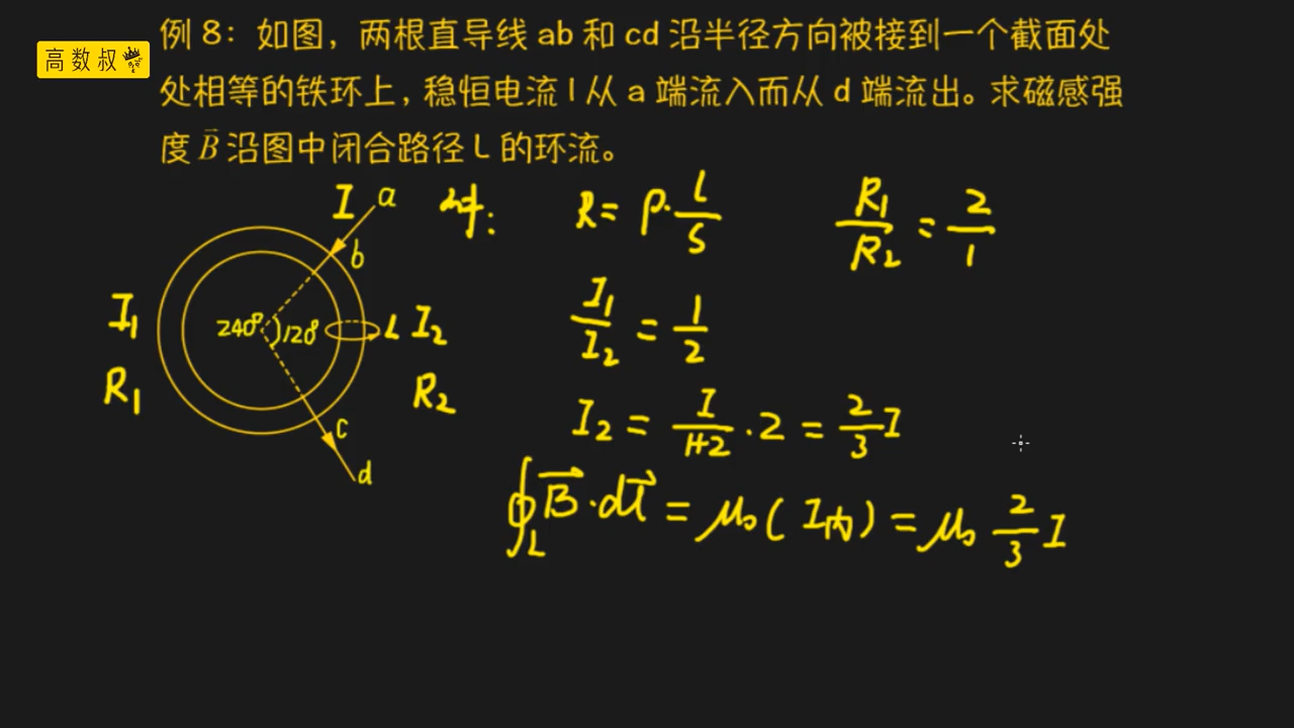 高数叔
例 8：如图，两根直导线 ab 和 cd 沿半径方向被接到一个截面处
处相等的铁环上，稳恒电流 I 从 a 端流入而从 d 端流出。求磁感强
度 B⃗ 沿图中闭合路径 L 的环流。
I a
b
I₁ 240° 120° L I₂
R₁ R₂
c
d
解: R = ρ·l/S R₁/R₂ = 2/1
I₁/I₂ = 1/2
I₂ = I/(1+2) · 2 = 2/3 I
∮_L B⃗·dl⃗ = μ₀(I内) = μ₀ 2/3 I